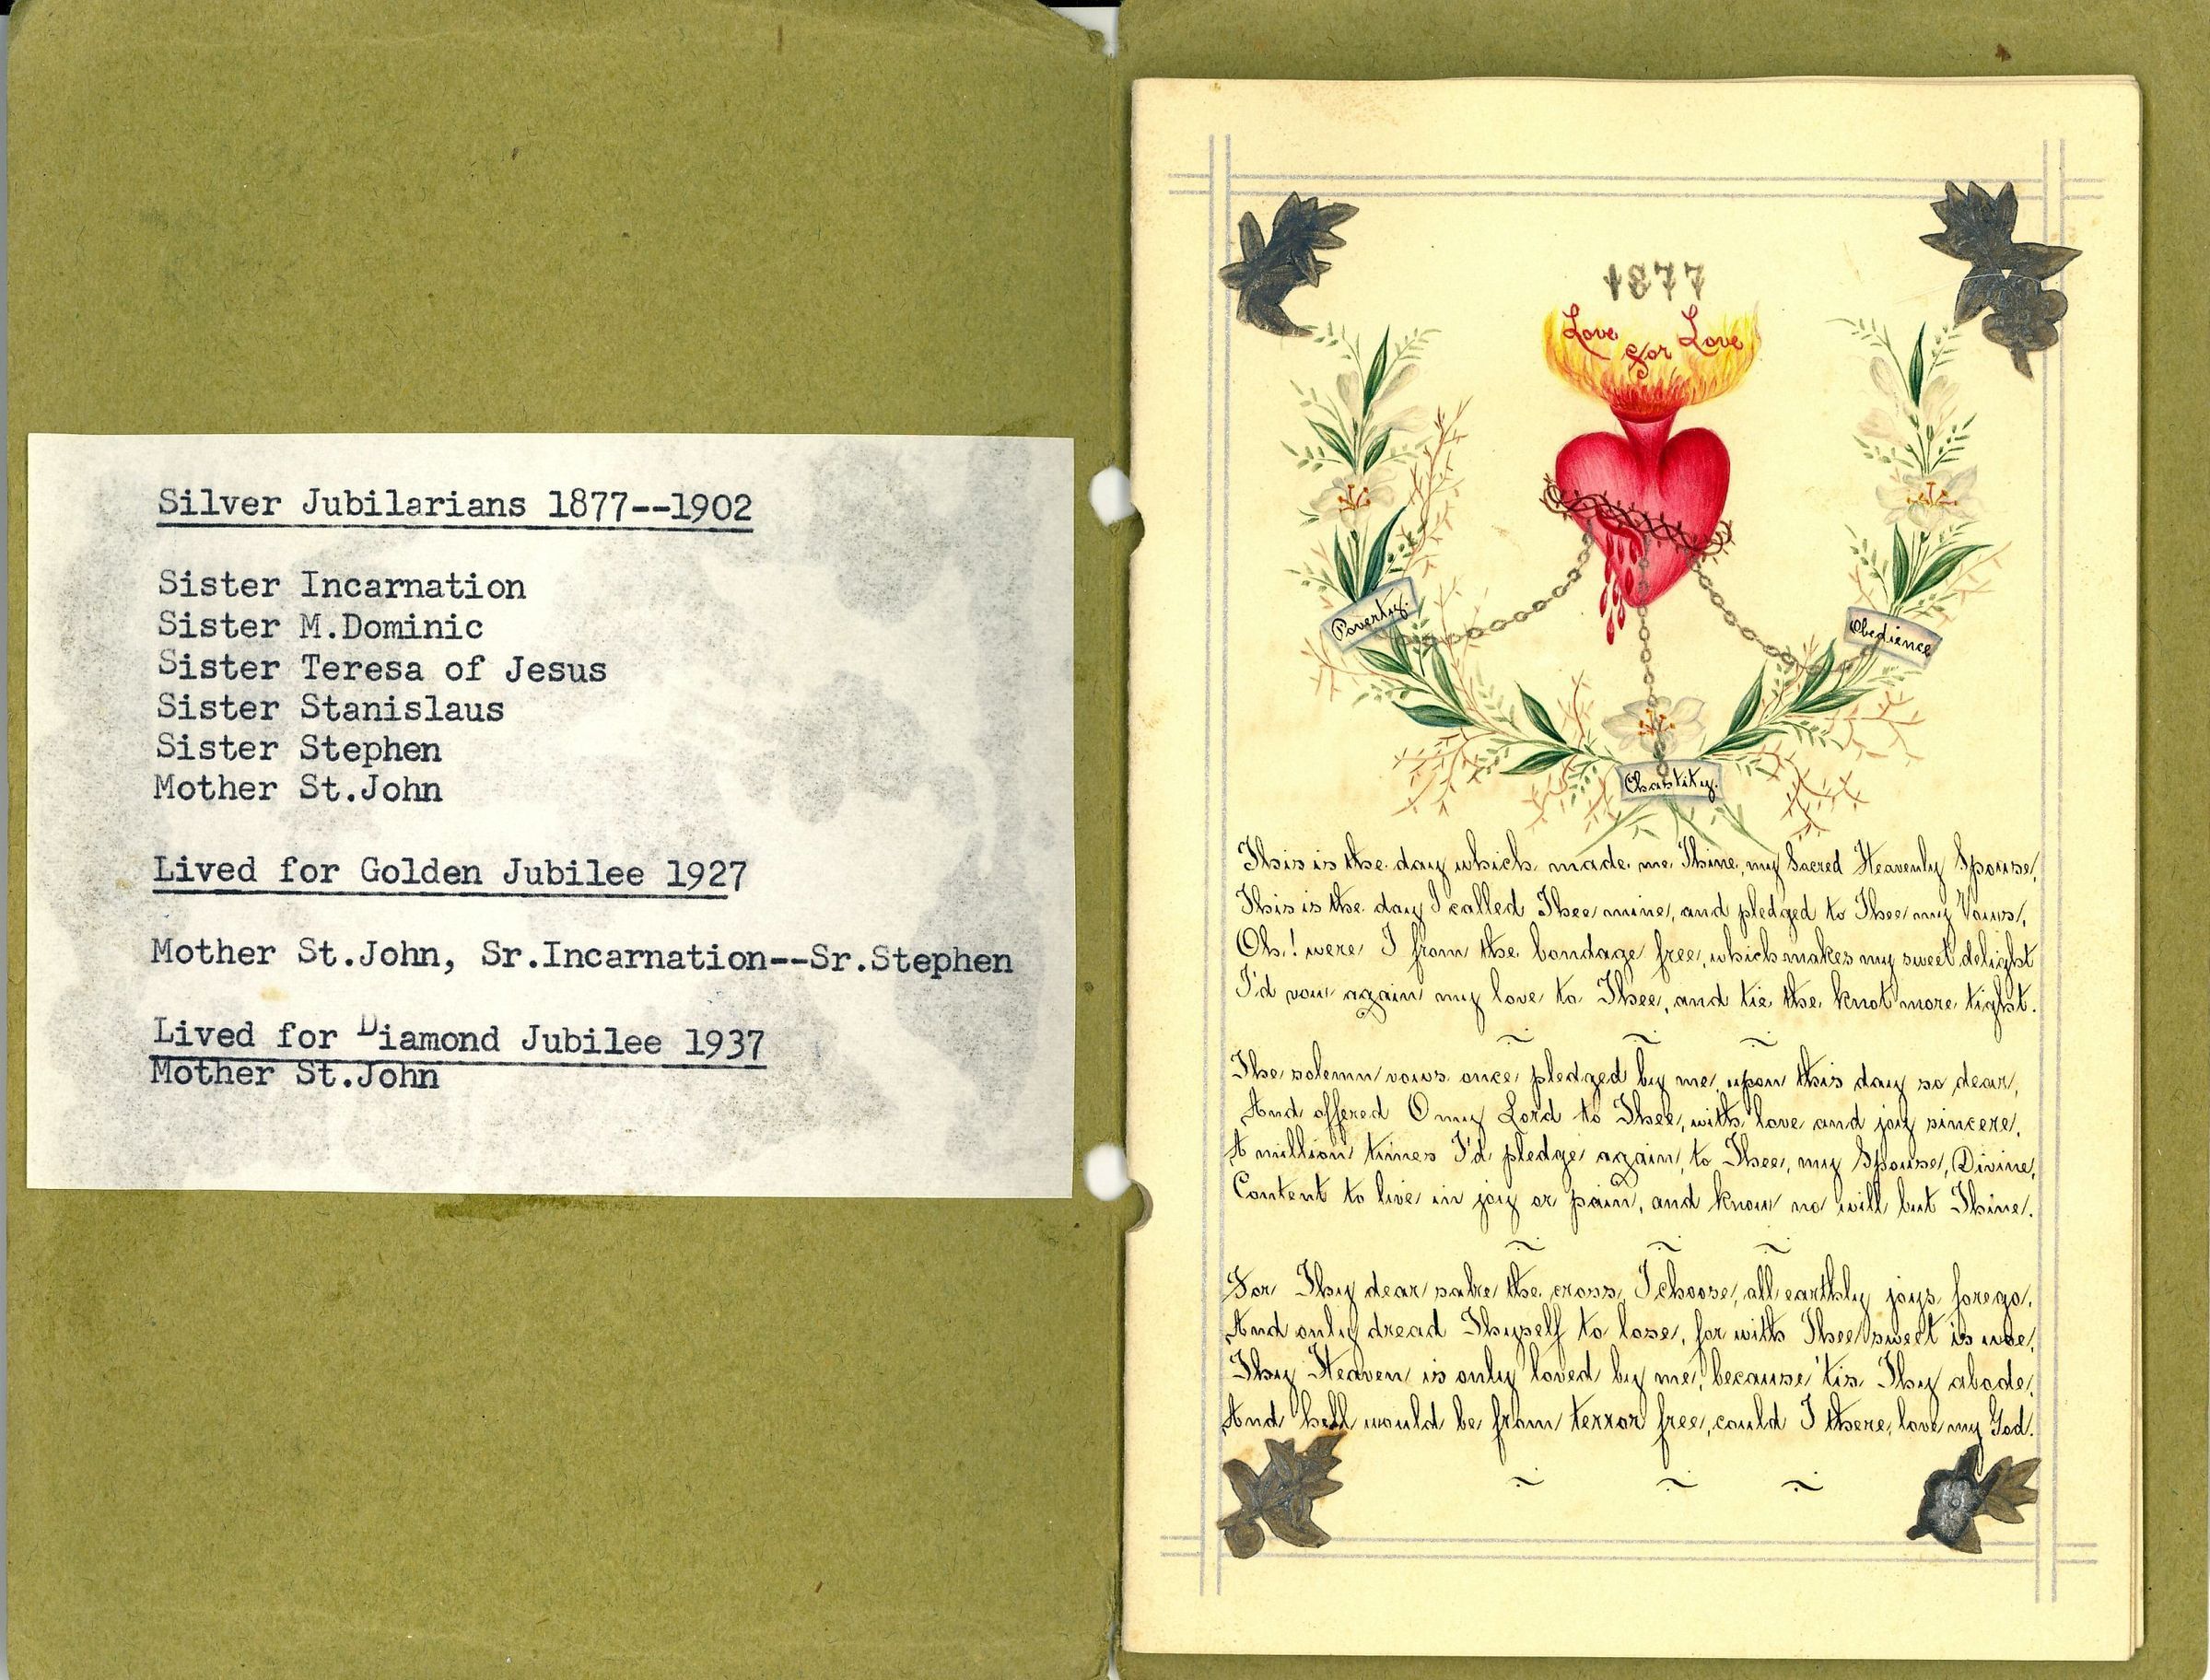 Silver Jubilarians 1877--1902
Sister Incarnation
Sister M.Dominic
Sister Teresa of Jesus
Sister Stanislaus
Sister Stephen
Mother St.John
Lived for Golden Jubilee 1927
Mother St.John, Sr.Incarnation--Sr.Stephen
Lived for Diamond Jubilee 1937
Mother St.John
1877
Love for Love
Poverty.
Obedience
Chastity.
This is the day which made me Thine, my Sacred Heavenly Spouse,
This is the day I called Thee mine, and pledged to Thee my Vows,
Oh! were I from the bondage free, which makes my sweet delight
I'd vow again my love to Thee, and tie the knot more tight.
The solemn vows once pledged by me, upon this day so dear,
And offered O my Lord to Thee, with love and joy sincere,
A million times I'd pledge again, to Thee, my Spouse, Divine,
Content to live in joy or pain, and know no will but Thine.
For Thy dear sake the cross, I choose, all earthly joys forego,
And only dread Thyself to lose, for with Thee sweet is woe,
Thy Heaven is only loved by me, because 'tis Thy abode,
And hell would be from terror free, could I there, love my God.